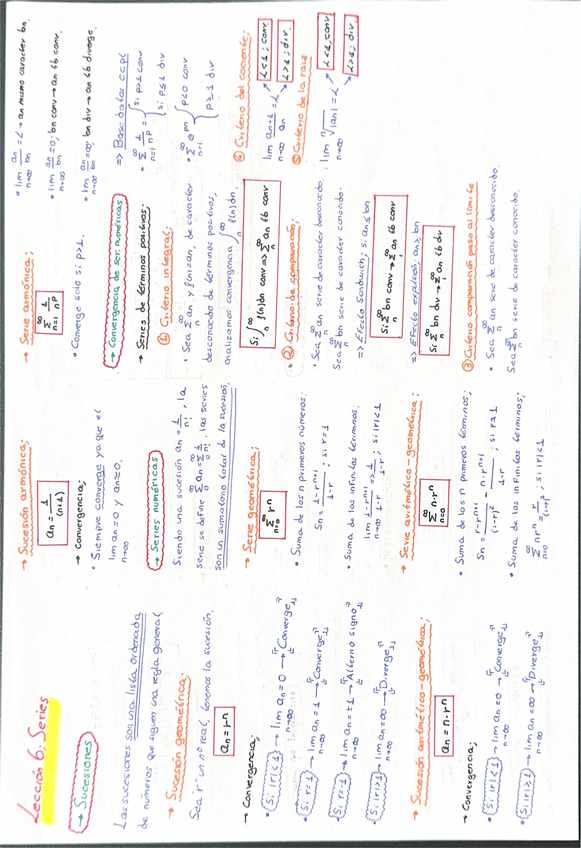 Lección 6: Series
→ Sucesiones
Las sucesiones son una lista ordenada
de números que siguen una regla general
→ Sucesión geométrica:
Sea 'r' un nº real, tenemos la sucesión.
an = r^n
→ Convergencia;
• Si |r|<1 → lim an = 0 → Converge
n→∞
• Si r=1 → lim an = 1 → Converge
n→∞
• Si r=-1 → lim an = ±1 → Alterno signo
n→∞
• Si |r|>1 → lim an = ∞ → Diverge
n→∞
→ Sucesión aritmético-geométrica;
an = n·r^n
→ Convergencia;
• Si |r|<1 → lim an = 0 → Converge
n→∞
• Si |r|≥1 → lim an = ∞ → Diverge
n→∞
→ Sucesión armónica;
an = 1/(n+1)
→ Convergencia;
• Siempre converge ya que el
lim an = 0 y an≥0.
n→∞
→ Series numéricas
Siendo una sucesión an = 1/n!, la
serie se define Σ an = Σ 1/n!. las series
son un sumatorio total de la sucesión.
→ Serie geométrica;
Σ r^n
n=0
• Suma de los n primeros números:
Sn = 1-r^n+1/1-r ; si r≠1
• Suma de los infinitos términos:
lim 1-r^n+1/1-r => 1/1-r ; si |r|<1
n→∞
→ Serie aritmético-geométrica:
Σ n·r^n
n=0
• Suma de los n primeros términos;
Sn = r-r^n+1/(1-r)² - n·r^n+1/1-r ; si r≠1
• Suma de los infinitos términos;
Σ nr^n = r/(1-r)² ; si |r|<1
n=0
→ Serie armónica;
Σ 1/n^p
n=1
• Converge solo si p>1.
→ Convergencia de ser. numéricas
→ Series de términos positivos;
① Criterio integral;
• Sea Σ an y f(n)=an, de caracter
desconocido de términos positivos,
analizamos convergencia ∫ f(n)dn.
Si ∫ f(n)dn conv => Σ an tb conv
② Criterio de comparación;
• Sea Σ an serie de caracter desconocido.
Sea Σ bn serie de caracter conocido.
=> Efecto Sandwich; si an≤bn
Si Σ bn conv → Σ an tb conv
=> Efecto expulsión; an≥bn
Si Σ bn div → Σ an tb div
③ Criterio comparación paso al límite
• Sea Σ an serie de caracter desconocido.
Sea Σ bn serie de caracter conocido.
• lim an/bn = L → an mismo caracter bn
n→∞
• lim an/bn = 0; bn conv → an tb conv.
n→∞
• lim an/bn = ∞; bn div → an tb diverge.
n→∞
=> Base datos
• Σ 1/n^p = { si p>1 conv
n=1 si p≤1 div
• Σ
n=1 p≥1 div
④ Criterio del cociente;
lim an+1/an = L
n→∞
L<1; conv.
L>1; div.
⑤ Criterio de la raíz
lim ⁿ√|an| = L
n→∞
L<1; conv
L>1; div.